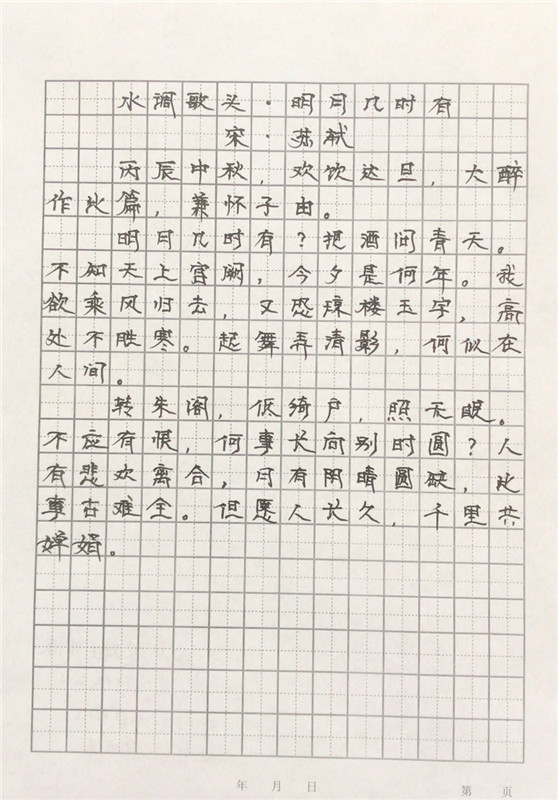 水调歌头·明月几时有
宋·苏轼
丙辰中秋，欢饮达旦，大醉
作此篇，兼怀子由。
明月几时有？把酒问青天。
不知天上宫阙，今夕是何年。我
欲乘风归去，又恐琼楼玉宇，高
处不胜寒。起舞弄清影，何似在
人间。
转朱阁，低绮户，照无眠。
不应有恨，何事长向别时圆？人
有悲欢离合，月有阴晴圆缺，此
事古难全。但愿人长久，千里共
婵娟。
年 月 日
第 页